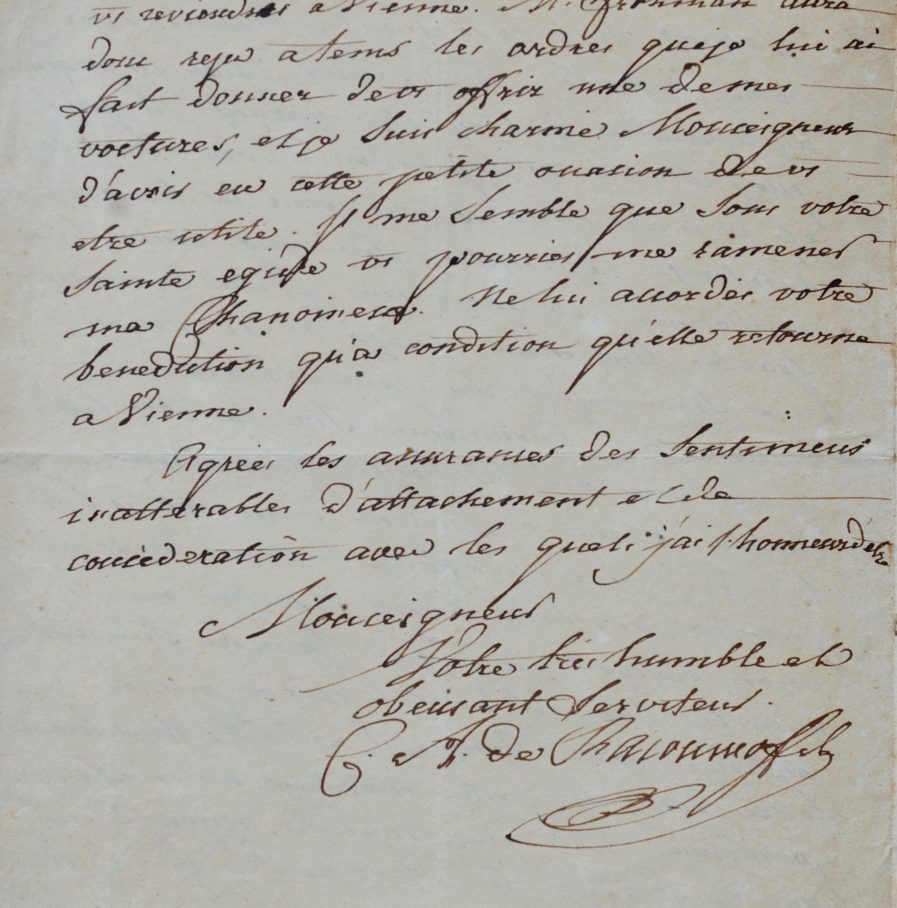 vs reviendres a Vienne. M. Frohman aura
donc reçu a tems les ordres que je lui ai
fait donner de vs offrir une de mes
voctures, et je suis charmé Monceigneur
d'avoir eu cette petite ocasion de vs
etre utile. Il me semble que sous votre
sainte egide vs pourries me ramener
ma Chanoinesse. Ne lui accordés votre
benediction qu'a condition qu'elle retourne
a Vienne.
Agrées les assurances des sentimens
inalterables d'attachement et de
concideration avec les quels j'ai l'honneur d'etre
Monceigneur
Votre très humble et
obeissant Serviteur.
C. A. de Rasoumoffsky